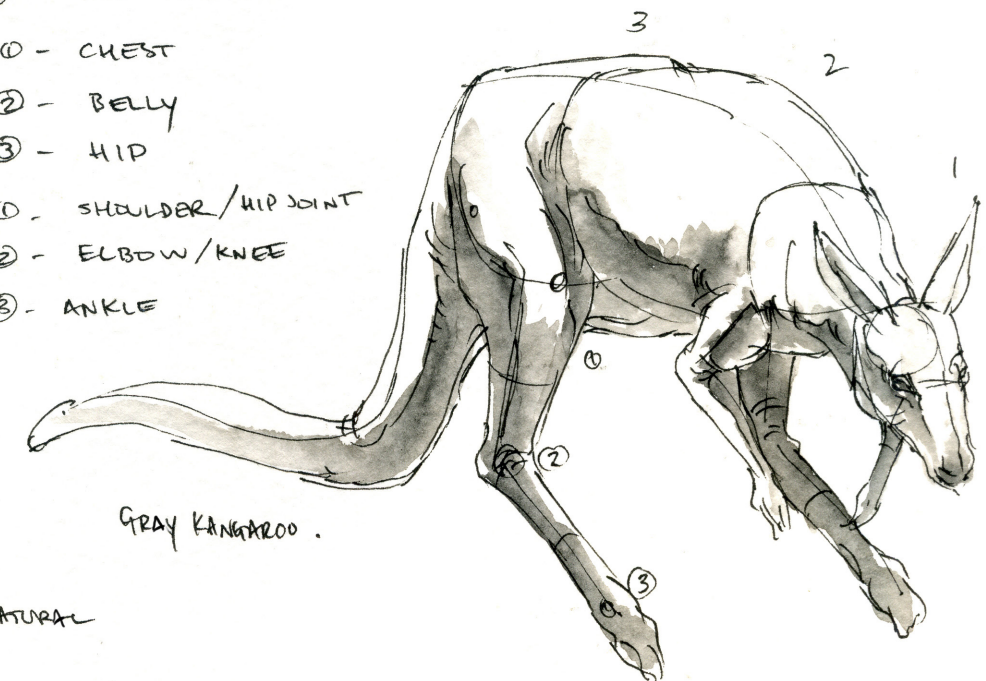 ① - CHEST
② - BELLY
③ - HIP
①. SHOULDER/HIP JOINT
② - ELBOW/KNEE
③ - ANKLE
3
2
1
①
②
③
GRAY KANGAROO.